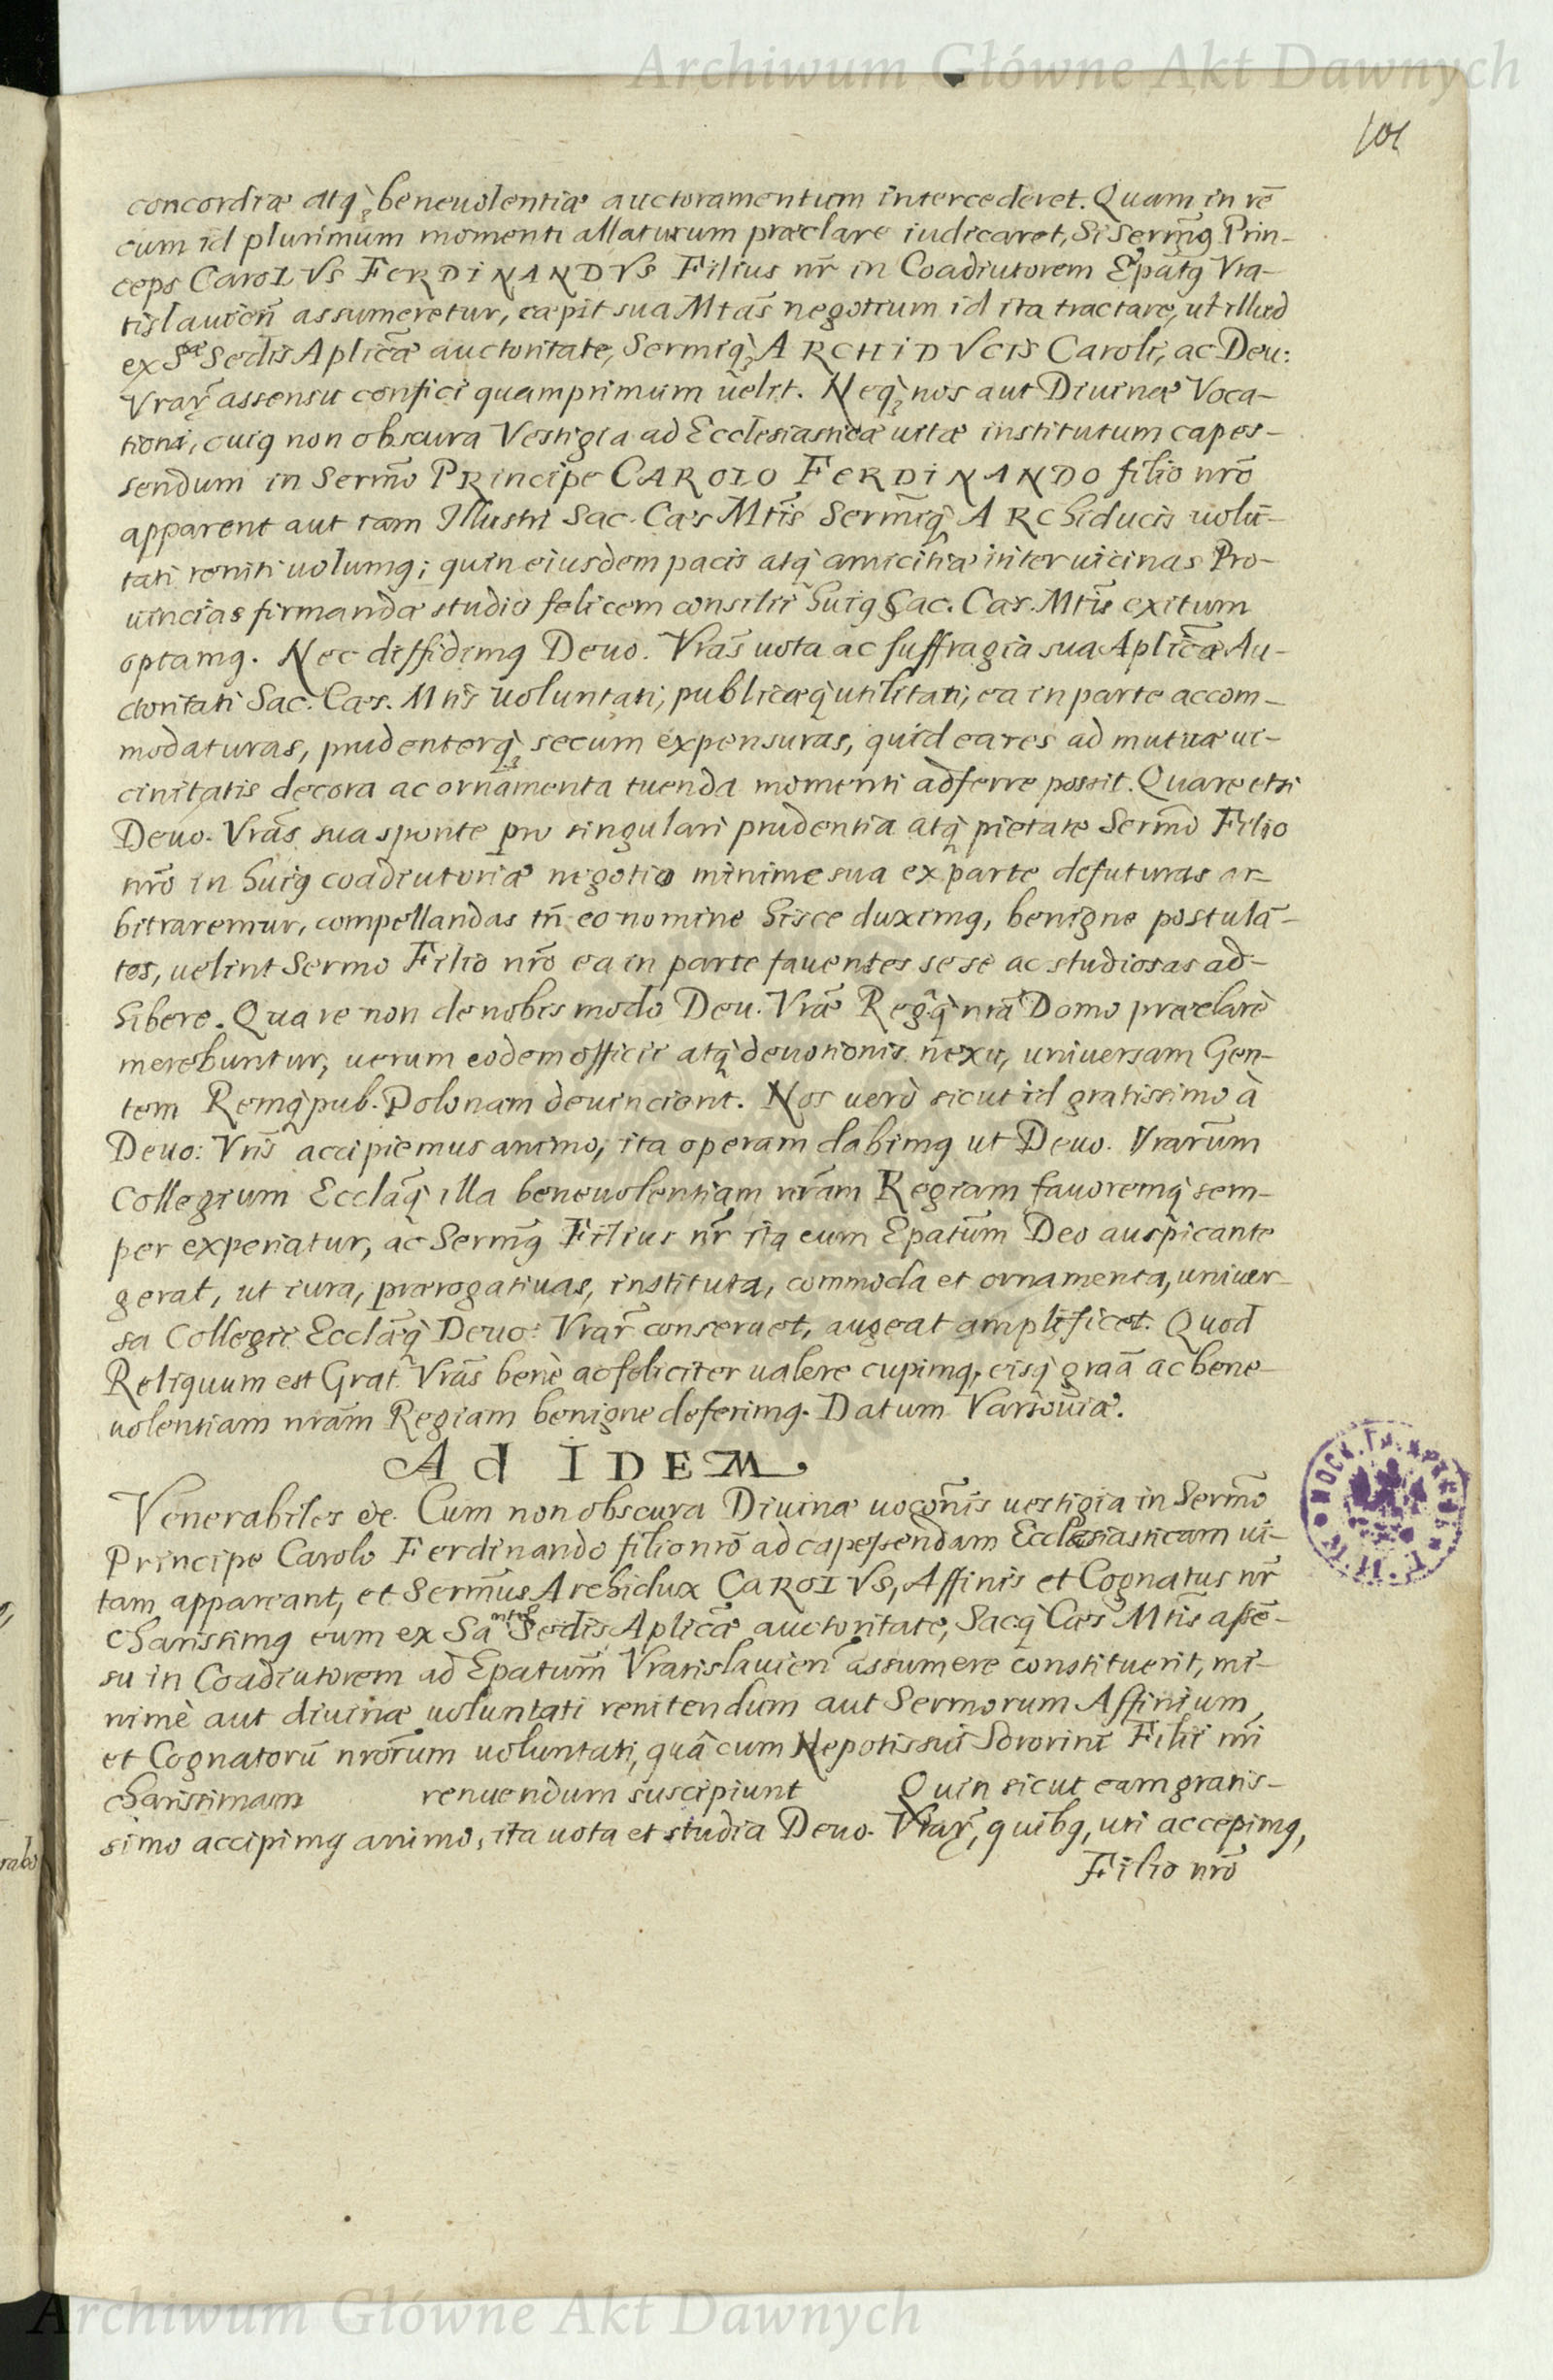 Archiwum Główne Akt Dawnych
101
concordiæ atq; beneuolentiæ auctoramentum intercederet. Quam in rē
cum id plurimum momenti allaturum præclare iudicaret, Si Serm̃g Prin-
ceps CaroLVs FERDINANDVS Filius nr̃ in Coadiutorem Ep̃atg Vra-
tislauien̄ assumeretur, cæpit sua Mtãs negotium id ita tractare, ut illud
ex Sæ Sedis Aplicæ̃ auctoritate, Sermiq; ARCHIDVCIS Caroli, ac Deu:
Vrar̃ assensu confici quamprimum uelit. Neq; nos aut Diuinæ Voca-
tioni, cuig non obscura Vestigia ad Ecclesiasticæ uitæ institutum capes-
sendum in Serm̃o PRincipe CAROLO FERDINANDO filio nr̃o
apparent aut tam Illustri Sac. Cæs Mtis̃ Serm̃iq; ARChiducis uolū-
tati reniti uolumg; quin eiusdem pacis atq; amicitiæ inter uicinas Pro-
uincias firmandæ studio felicem consilii huig Sac. Cæs. Mtis̃ exitum
optamg. Nec diffidimg Deuo. Vrãs uota ac suffragia sua Aplicæ̃ Au-
ctoritati Sac. Cæs. Mtis uoluntati, publicæq; utilitati, ea in parte accom-
modaturas, prudenterq; secum expensuras, quid ea res ad mutuæ ui-
cinitatis decora ac ornamenta tuenda momenti adferre possit. Quare etsi
Deuo. Vrãs sua sponte pro singulari prudentia atq; pietate Serm̃o Filio
nr̃o in huig coadiutoriæ negotio minime sua ex parte defuturas ar-
bitraremur, compellandas tñ eo nomine hisce duximg, benigne postulā-
tes, uelint Sermo Filio nr̃o ea in parte fauentes sese ac studiosas ad-
hibere. Qua re non de nobis modo Deu. Vræ̃ Regq; nr̃a Domo præclarè
merebuntur, uerum eodem officii atq; deuotionis nexu, uniuersam Gen-
tem Remq; pub. Polonam deuincient. Nos uerò sicut id gratissimo à
Deuo: Vris̃ accipiemus animo, ita operam dabimg ut Deuo. Vrarum̃
Collegium Ecclãq; illa beneuolentiam nrãm Regiam fauoremq; sem-
per experiatur, ac Serm̃g Filius nr̃ ita eum Epatum̃ Deo auspicante
gerat, ut iura, prærogatiuas, instituta, commoda et ornamenta, uniuer-
sa Collegii Ecclãq; Deuo: Vrar̃ conseruet, augeat amplificet. Quod
Reliquum est Grat. Vrãs benè ac feliciter ualere cupimg, eisq; graã ac bene-
uolentiam nrãm Regiam benigne deferimg. Datum Varsouiæ.
Ad IDEM
Venerabiles &c. Cum non obscura Diuinæ uocon̄is uestigia in Serm̃o
Principe Carolo Ferdinando filio nr̃o ad capessendam Ecclesiasticam ui-
tam appareant, et Serm̃us Archidux CAROLVS, Affinis et Cognatus nr̃
Charissimg eum ex Sa Sedis Aplicæ̃ auctoritate, Sacq; Cæs Mtis̃ assē-
su in Coadiutorem ad Epatum̃ Vratislauien̄ assumere constituerit, mi-
nimè aut diuinæ uoluntati renitendum aut Sermorum Affinium
et Cognatorū nror̃um uoluntati, quã cum Nepotis sui Sororini Filii nr̃i
charissimam renuendum suscipiunt Quin sicut eam gratis-
simo accipimg animo, ita uota et studia Deuo. Vrar̃, quibg, uti accepimg,
Filio nr̃o
Archiwum Główne Akt Dawnych